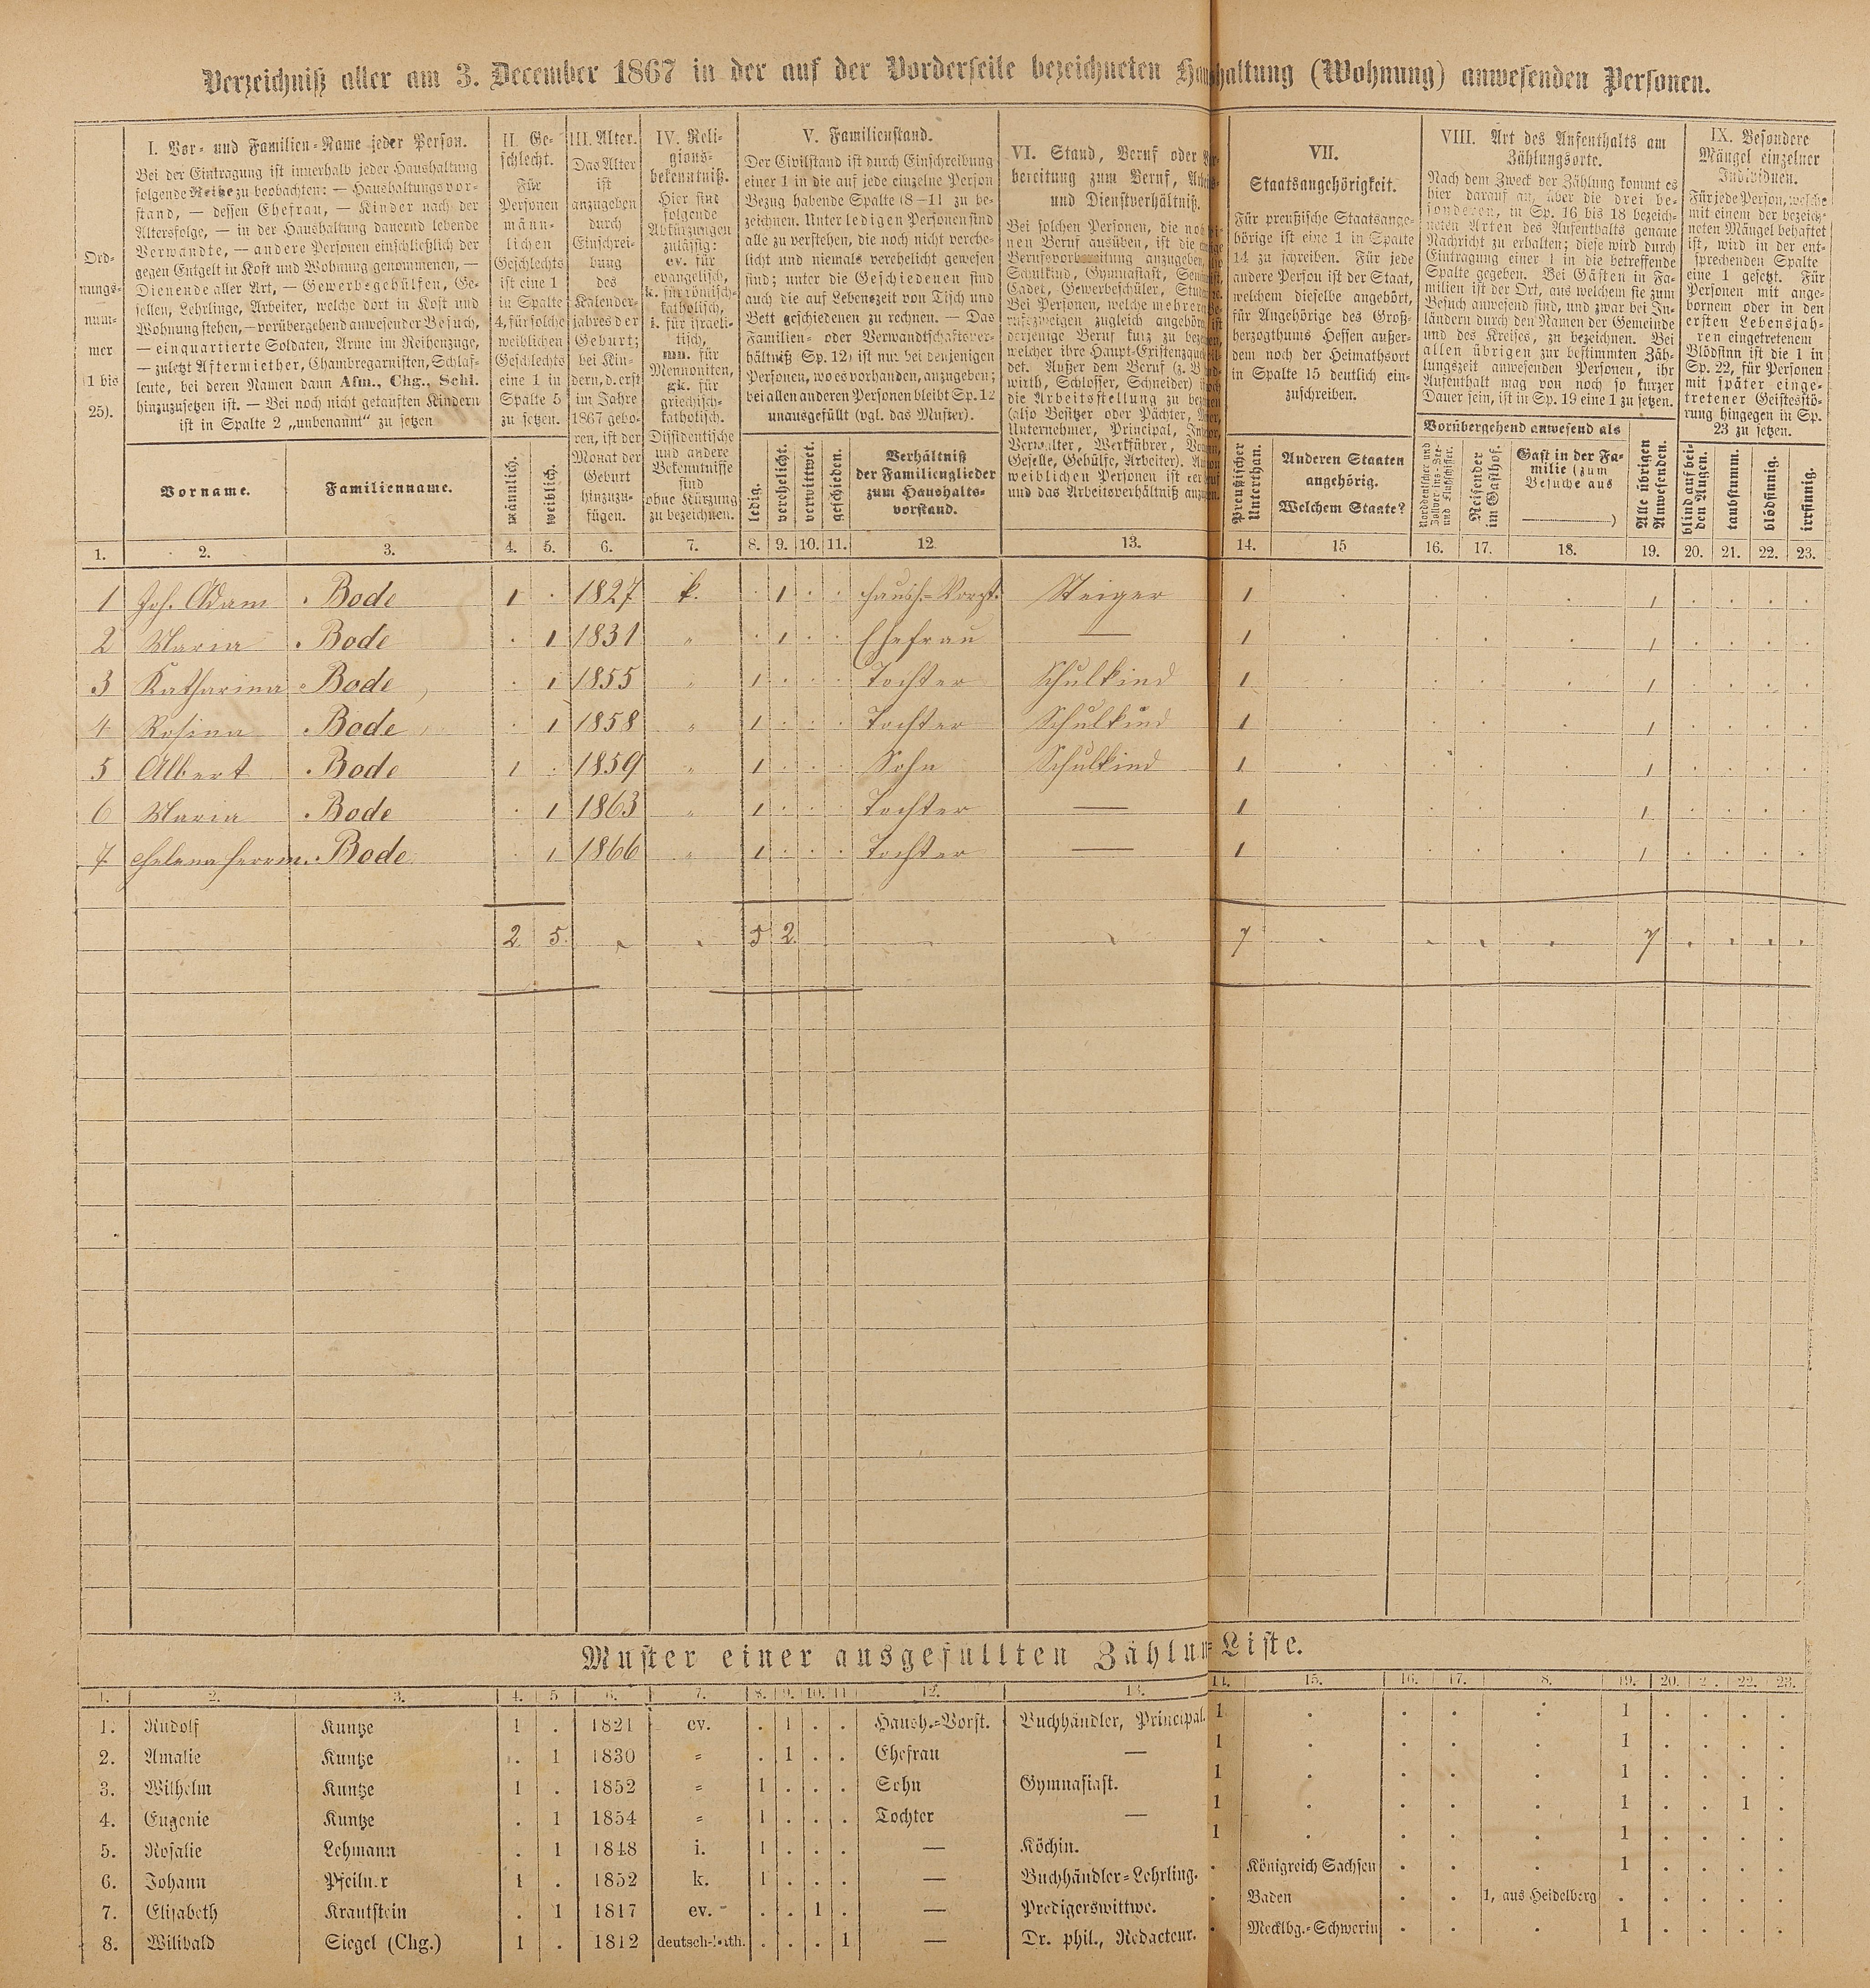 Verzeichniß aller am 3. December 1867 in der auf der Vorderseite bezeichneten Haushaltung (Wohnung) anwesenden Personen.
Ord-
nungs-
num-
mer
(1 bis
25).
I. Vor- und Familien-Name jeder Person.
Bei der Eintragung ist innerhalb jeder Haushaltung
folgende Reihe zu beobachten: — Haushaltungsvor-
stand, — dessen Ehefrau, — Kinder nach der
Altersfolge, — in der Haushaltung dauernd lebende
Verwandte, — andere Personen einschließlich der
gegen Entgelt in Kost und Wohnung genommenen, —
Dienende aller Art, — Gewerbsgehülfen, Ge-
sellen, Lehrlinge, Arbeiter, welche dort in Kost und
Wohnung stehen, — vorübergehend anwesender Besuch,
— einquartierte Soldaten, Arme im Reihenzuge,
— zuletzt Aftermiether, Chambregarnisten, Schlaf-
leute, bei deren Namen dann Afm., Chg., Schl.
hinzuzusetzen ist. — Bei noch nicht getauften Kindern
ist in Spalte 2 „unbenannt" zu setzen
Vorname.
Familienname.
II. Ge-
schlecht.
Für
Personen
männ-
lichen
Geschlechts
ist eine 1
in Spalte
4, für solche
weiblichen
Geschlechts
eine 1 in
Spalte 5
zu setzen.
männlich.
weiblich.
III. Alter.
Das Alter
ist
anzugeben
durch
Einschrei-
bung
des
Kalender-
jahres der
Geburt;
bei Kin-
dern, d. erst
im Jahre
1867 gebo-
ren, ist der
Monat der
Geburt
hinzuzu-
fügen.
IV. Reli-
gions-
bekenntniß.
Hier sind
folgende
Abkürzungen
zulässig:
ev. für
evangelisch,
k. für römisch-
katholisch,
i. für israeli-
tisch,
mn. für
Mennoniten,
gk. für
griechisch-
katholisch.
Dissidentische
und andere
Bekenntnisse
sind
ohne Kürzung
zu bezeichnen.
V. Familienstand.
Der Civilstand ist durch Einschreibung
einer 1 in die auf jede einzelne Person
Bezug habende Spalte (8—11 zu be-
zeichnen. Unter ledigen Personen sind
alle zu verstehen, die noch nicht verehe-
licht und niemals verehelicht gewesen
sind; unter die Geschiedenen sind
auch die auf Lebenszeit von Tisch und
Bett geschiedenen zu rechnen. — Das
Familien- oder Verwandtschaftsver-
hältniß Sp. 12) ist nur bei denjenigen
Personen, wo es vorhanden, anzugeben;
bei allen anderen Personen bleibt Sp. 12
unausgefüllt (vgl. das Muster).
ledig.
verehelicht.
verwittwet.
geschieden.
Verhältniß
der Familienglieder
zum Haushalts-
vorstand.
VI. Stand, Beruf oder Vor-
bereitung zum Beruf, Arbeits-
und Dienstverhältniß.
Bei solchen Personen, die noch
nen Beruf ausüben, ist die
Berufsvorbereitung anzugeben,
Schulkind, Gymnasiast,
Cadet, Gewerbeschüler,
Bei Personen, welche mehreren
rufszweigen zugleich angehören, ist
derjenige Beruf kurz zu
welcher ihre Haupt-Existenzquelle
det. Außer dem Beruf (z. B.
wirth, Schlosser, Schneider)
die Arbeitsstellung zu
(also Besitzer oder Pächter,
Unternehmer, Principal,
Verwalter, Werkführer,
Geselle, Gehülfe, Arbeiter).
weiblichen Personen ist der
und das Arbeitsverhältniß
VII.
Staatsangehörigkeit.
Für preußische Staatsange-
hörige ist eine 1 in Spalte
14 zu schreiben. Für jede
andere Person ist der Staat,
welchem dieselbe angehört,
für Angehörige des Groß-
herzogthums Hessen außer-
dem noch der Heimathsort
in Spalte 15 deutlich ein-
zuschreiben.
Preußischer
Unterthan.
Anderen Staaten
angehörig.
Welchem Staate?
VIII. Art des Aufenthalts am
Zählungsorte.
Nach dem Zweck der Zählung kommt es
hier darauf an, über die drei be-
sonderen, in Sp. 16 bis 18 bezeich-
neten Arten des Aufenthalts genaue
Nachricht zu erhalten; diese wird durch
Eintragung einer 1 in die betreffende
Spalte gegeben. Bei Gästen in Fa-
milien ist der Ort, aus welchem sie zum
Besuch anwesend sind, und zwar bei In-
ländern durch den Namen der Gemeinde
und des Kreises, zu bezeichnen. Bei
allen übrigen zur bestimmten Zäh-
lungszeit anwesenden Personen, ihr
Aufenthalt mag von noch so kurzer
Dauer sein, ist in Sp. 19 eine 1 zu setzen.
Vorübergehend anwesend als
Norddeutscher und
Zollver ins- See-
und Flußschiffer.
Reisender
im Gasthof.
Gast in der Fa-
milie (zum
Besuche aus
)
Alle übrigen
Anwesenden.
IX. Besondere
Mängel einzelner
Individuen.
Für jede Person, welche
mit einem der bezeich-
neten Mängel behaftet
ist, wird in der ent-
sprechenden Spalte
eine 1 gesetzt. Für
Personen mit ange-
bornem oder in den
ersten Lebensjah-
ren eingetretenem
Blödsinn ist die 1 in
Sp. 22, für Personen
mit später einge-
tretener Geistesstö-
rung hingegen in Sp.
23 zu setzen.
blind auf bei-
den Augen.
taubstumm.
blödsinnig.
irrsinnig.
1. 2. 3. 4. 5. 6. 7. 8. 9. 10. 11. 12. 13. 14. 15 16. 17. 18. 19. 20. 21. 22. 23.
1 Joh. Adam Bode 1 · 1827 k. · 1 · · Haush.-Vorst. Steiger 1 · · · · 1 · · · ·
2 Maria Bode · 1 1831 " · 1 · · Ehefrau — 1 · · · · 1 · · · ·
3 Katharina Bode · 1 1855 " 1 · · · Tochter Schulkind 1 · · · · 1 · · · ·
4 Rosina Bode · 1 1858 " 1 · · · Tochter Schulkind 1 · · · · 1 · · · ·
5 Albert Bode 1 · 1859 " 1 · · · Sohn Schulkind 1 · · · · 1 · · · ·
6 Maria Bode · 1 1863 " 1 · · · Tochter — 1 · · · · 1 · · · ·
7 Helena Herrm. Bode · 1 1866 " 1 · · · Tochter — 1 · · · · 1 · · · ·
2 5. 5 2 7 · · · · 7 · · · ·
Muster einer ausgefüllten Zählungs-Liste.
1. 2. 3. 4. 5 6. 7. 8. 9. 10. 11 12. 13. 14. 15. 16. 17. 8. 19. 20. 2 . 22. 23.
1. Rudolf Kuntze 1 . 1821 ev. . 1 . . Haush.-Vorst. Buchhändler, Principal. 1 . . . . 1 . . . .
2. Amalie Kuntze . 1 1830 = . 1 . . Ehefrau — 1 . . . . 1 . . . .
3. Wilhelm Kuntze 1 . 1852 = 1 . . . Sohn Gymnasiast. 1 . . . . 1 . . . .
4. Eugenie Kuntze . 1 1854 = 1 . . . Tochter — 1 . . . . 1 . . 1 .
5. Rosalie Lehmann . 1 1848 i. 1 . . . — Köchin. 1 . . . . 1 . . . .
6. Johann Pfeiln.r 1 . 1852 k. 1 . . . — Buchhändler-Lehrling. . Königreich Sachsen . . . 1 . . . .
7. Elisabeth Krautstein . 1 1817 ev. . . 1 . — Predigerswittwe. . Baden . . 1, aus Heidelberg . . . . .
8. Wilibald Siegel (Chg.) 1 . 1812 deutsch-kath. . . . 1 — Dr. phil., Redacteur. . Mecklbg.-Schwerin . . . 1 . . . .